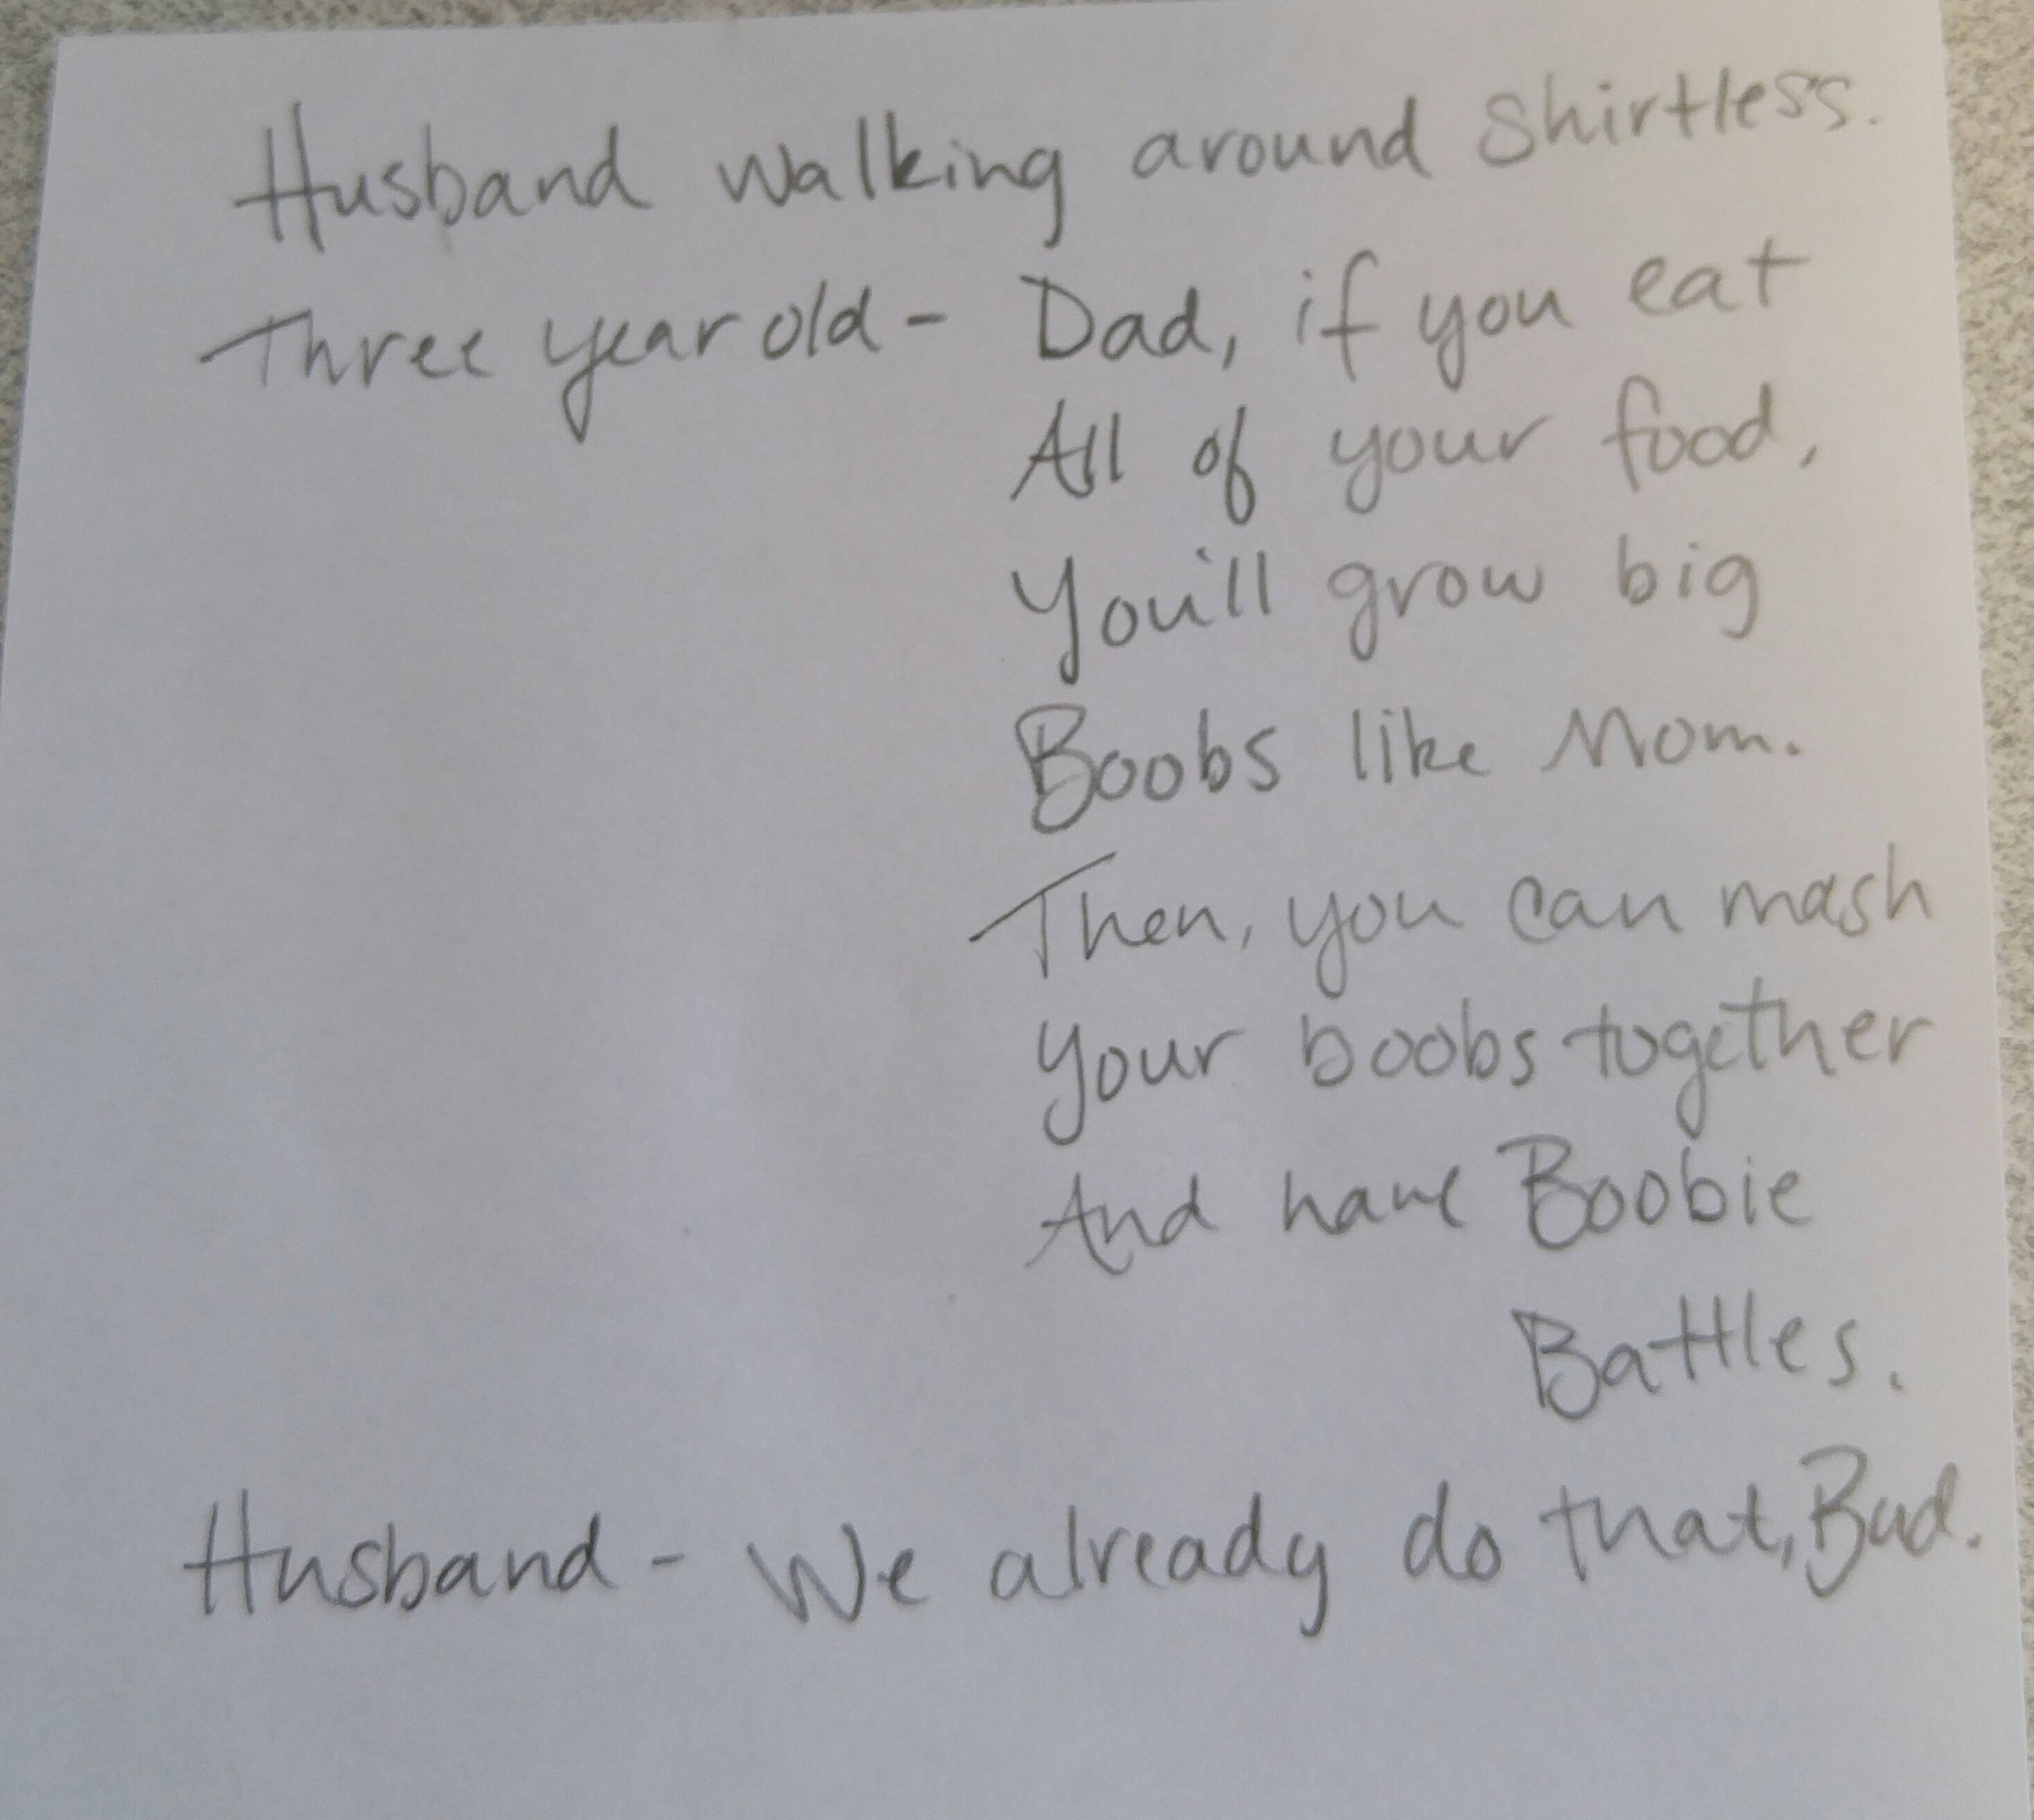 Husband walking around shirtless.
Three year old - Dad, if you eat
All of your food,
You'll grow big
Boobs like Mom.
Then, you can mash
your boobs together
And have Boobie
Battles.
Husband - We already do that, Bud.